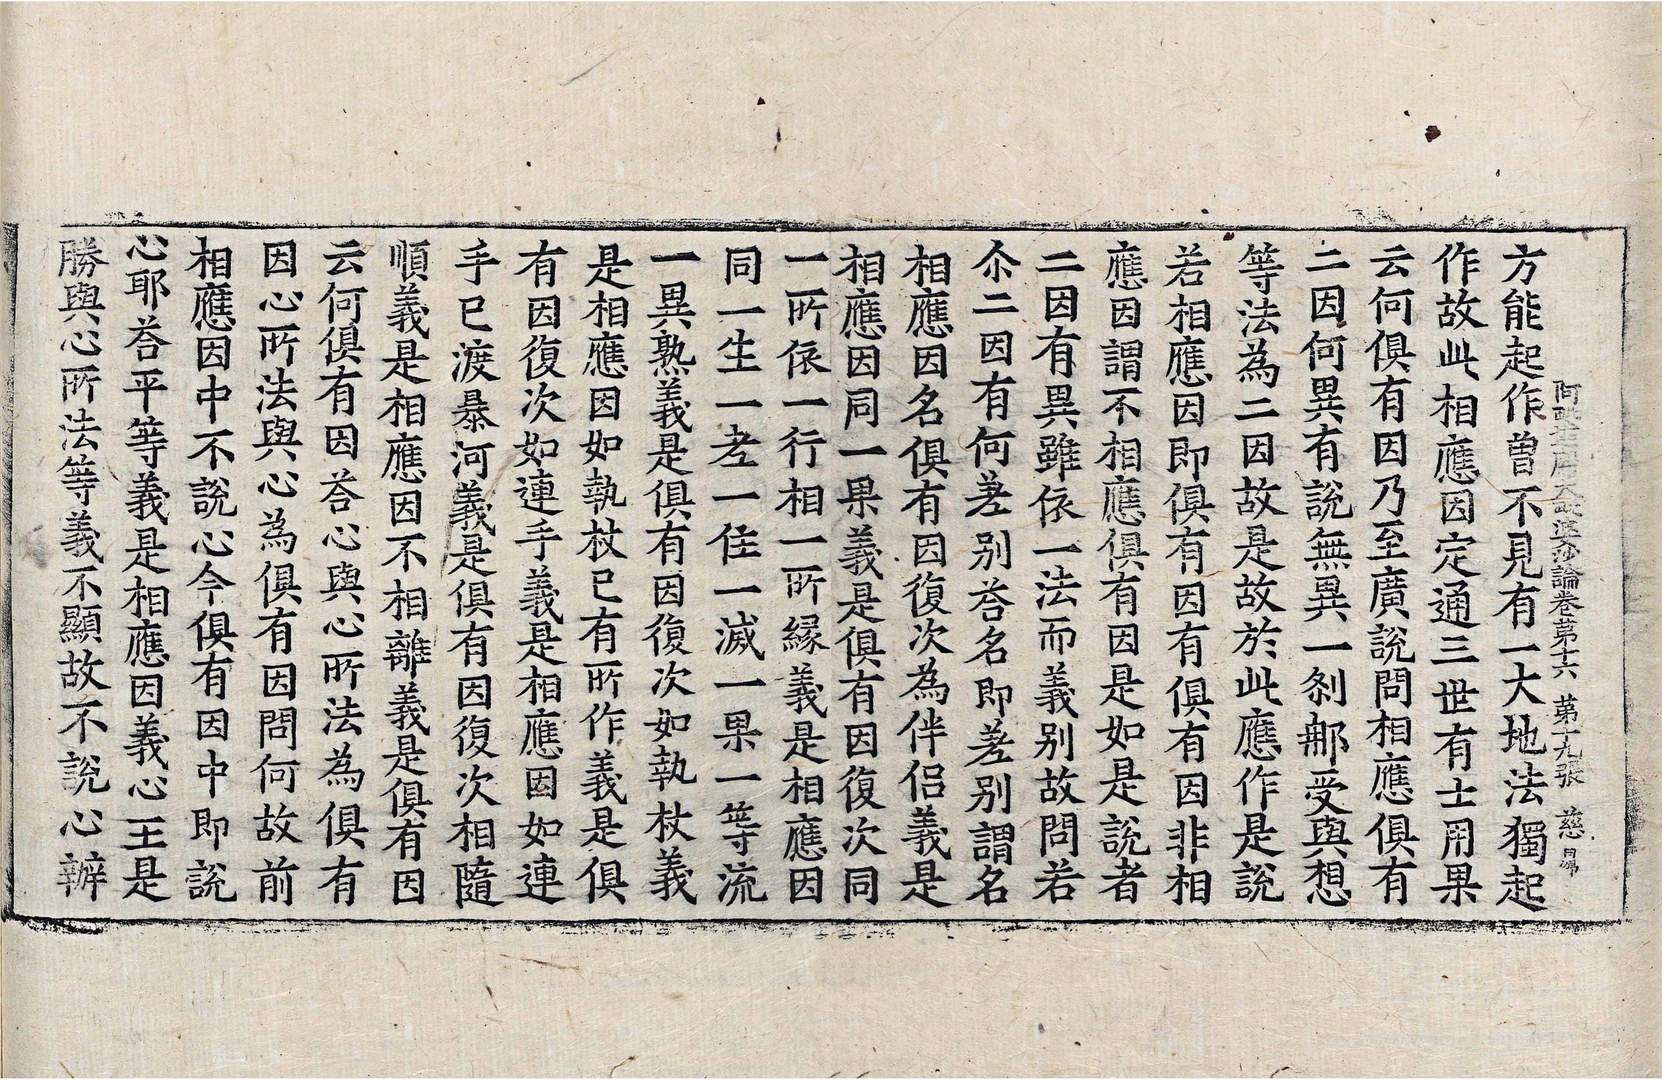 阿毗大毗婆沙論卷第十六 第十九張 慈
方能起作曾不見有一大地法獨起
作故此相應因定通三世有士用果
云何俱有因乃至廣說問相應俱有
二因何異有說無異一刹那受與想
等法為二因故是故於此應作是說
若相應因即俱有因有俱有因非相
應因謂不相應俱有因是如是說者
二因有異雖依一法而義別故問若
尒二因有何差別荅名即差別謂名
相應因名俱有因復次為伴侶義是
相應因同一果義是俱有因復次同
一所依一行相一所緣義是相應因
同一生一老一住一滅一果一等流
一異熟義是俱有因復次如執杖義
是相應因如執杖已有所作義是俱
有因復次如連手義是相應因如連
手已渡暴河義是俱有因復次相隨
順義是相應因不相離義是俱有因
云何俱有因荅心與心所法為俱有
因心所法與心為俱有因問何故前
相應因中不說心今俱有因中即說
心耶荅平等義是相應因義心王是
勝與心所法等義不顯故不說心辦